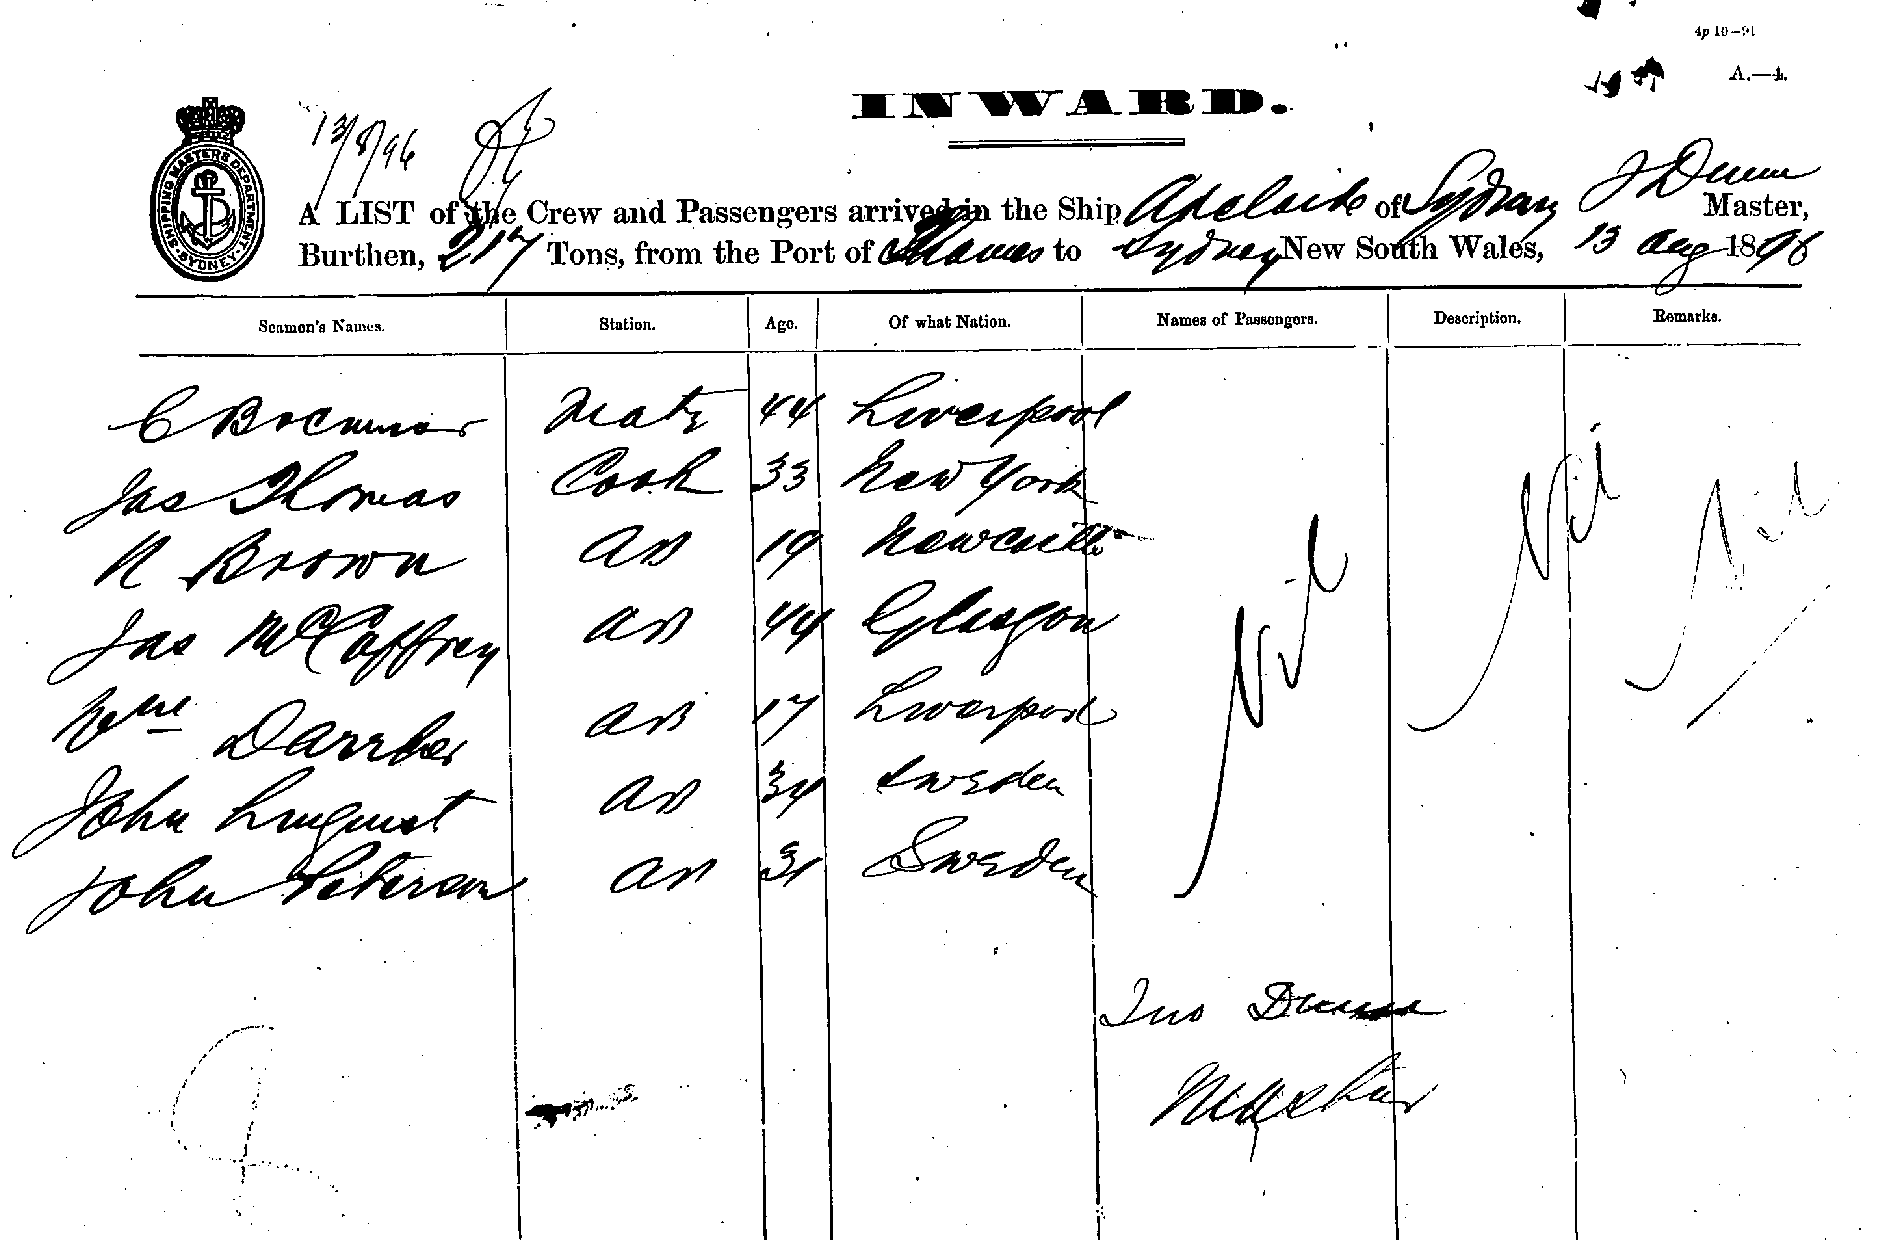 4p 10—91
A.—4.
INWARD.
13/8/96
SHIPPING MASTERS DEPARTMENT SYDNEY
A LIST of the Crew and Passengers arrived in the Ship Adelaide of Sydney J Dunn Master,
Burthen, 217 Tons, from the Port of Thames to Sydney New South Wales, 13 Aug 1896
Seamen's Names. Station. Age. Of what Nation. Names of Passengers. Description. Remarks.
C Mate 44 Liverpool
Jas Thomas Cook 33 New York
N Brown AB 19 Newcastle
Jas McCaffrey AB 44 Glasgow
Wm AB 17 Liverpool
John Linquist AB 34 Sweden
John Peterson AB 31 Sweden
Nil Nil Nil
Jno Dunn
Master